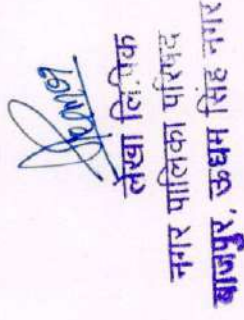 लेखा लिपिक
नगर पालिका परिषद
बाजपुर, ऊधम सिंह नगर